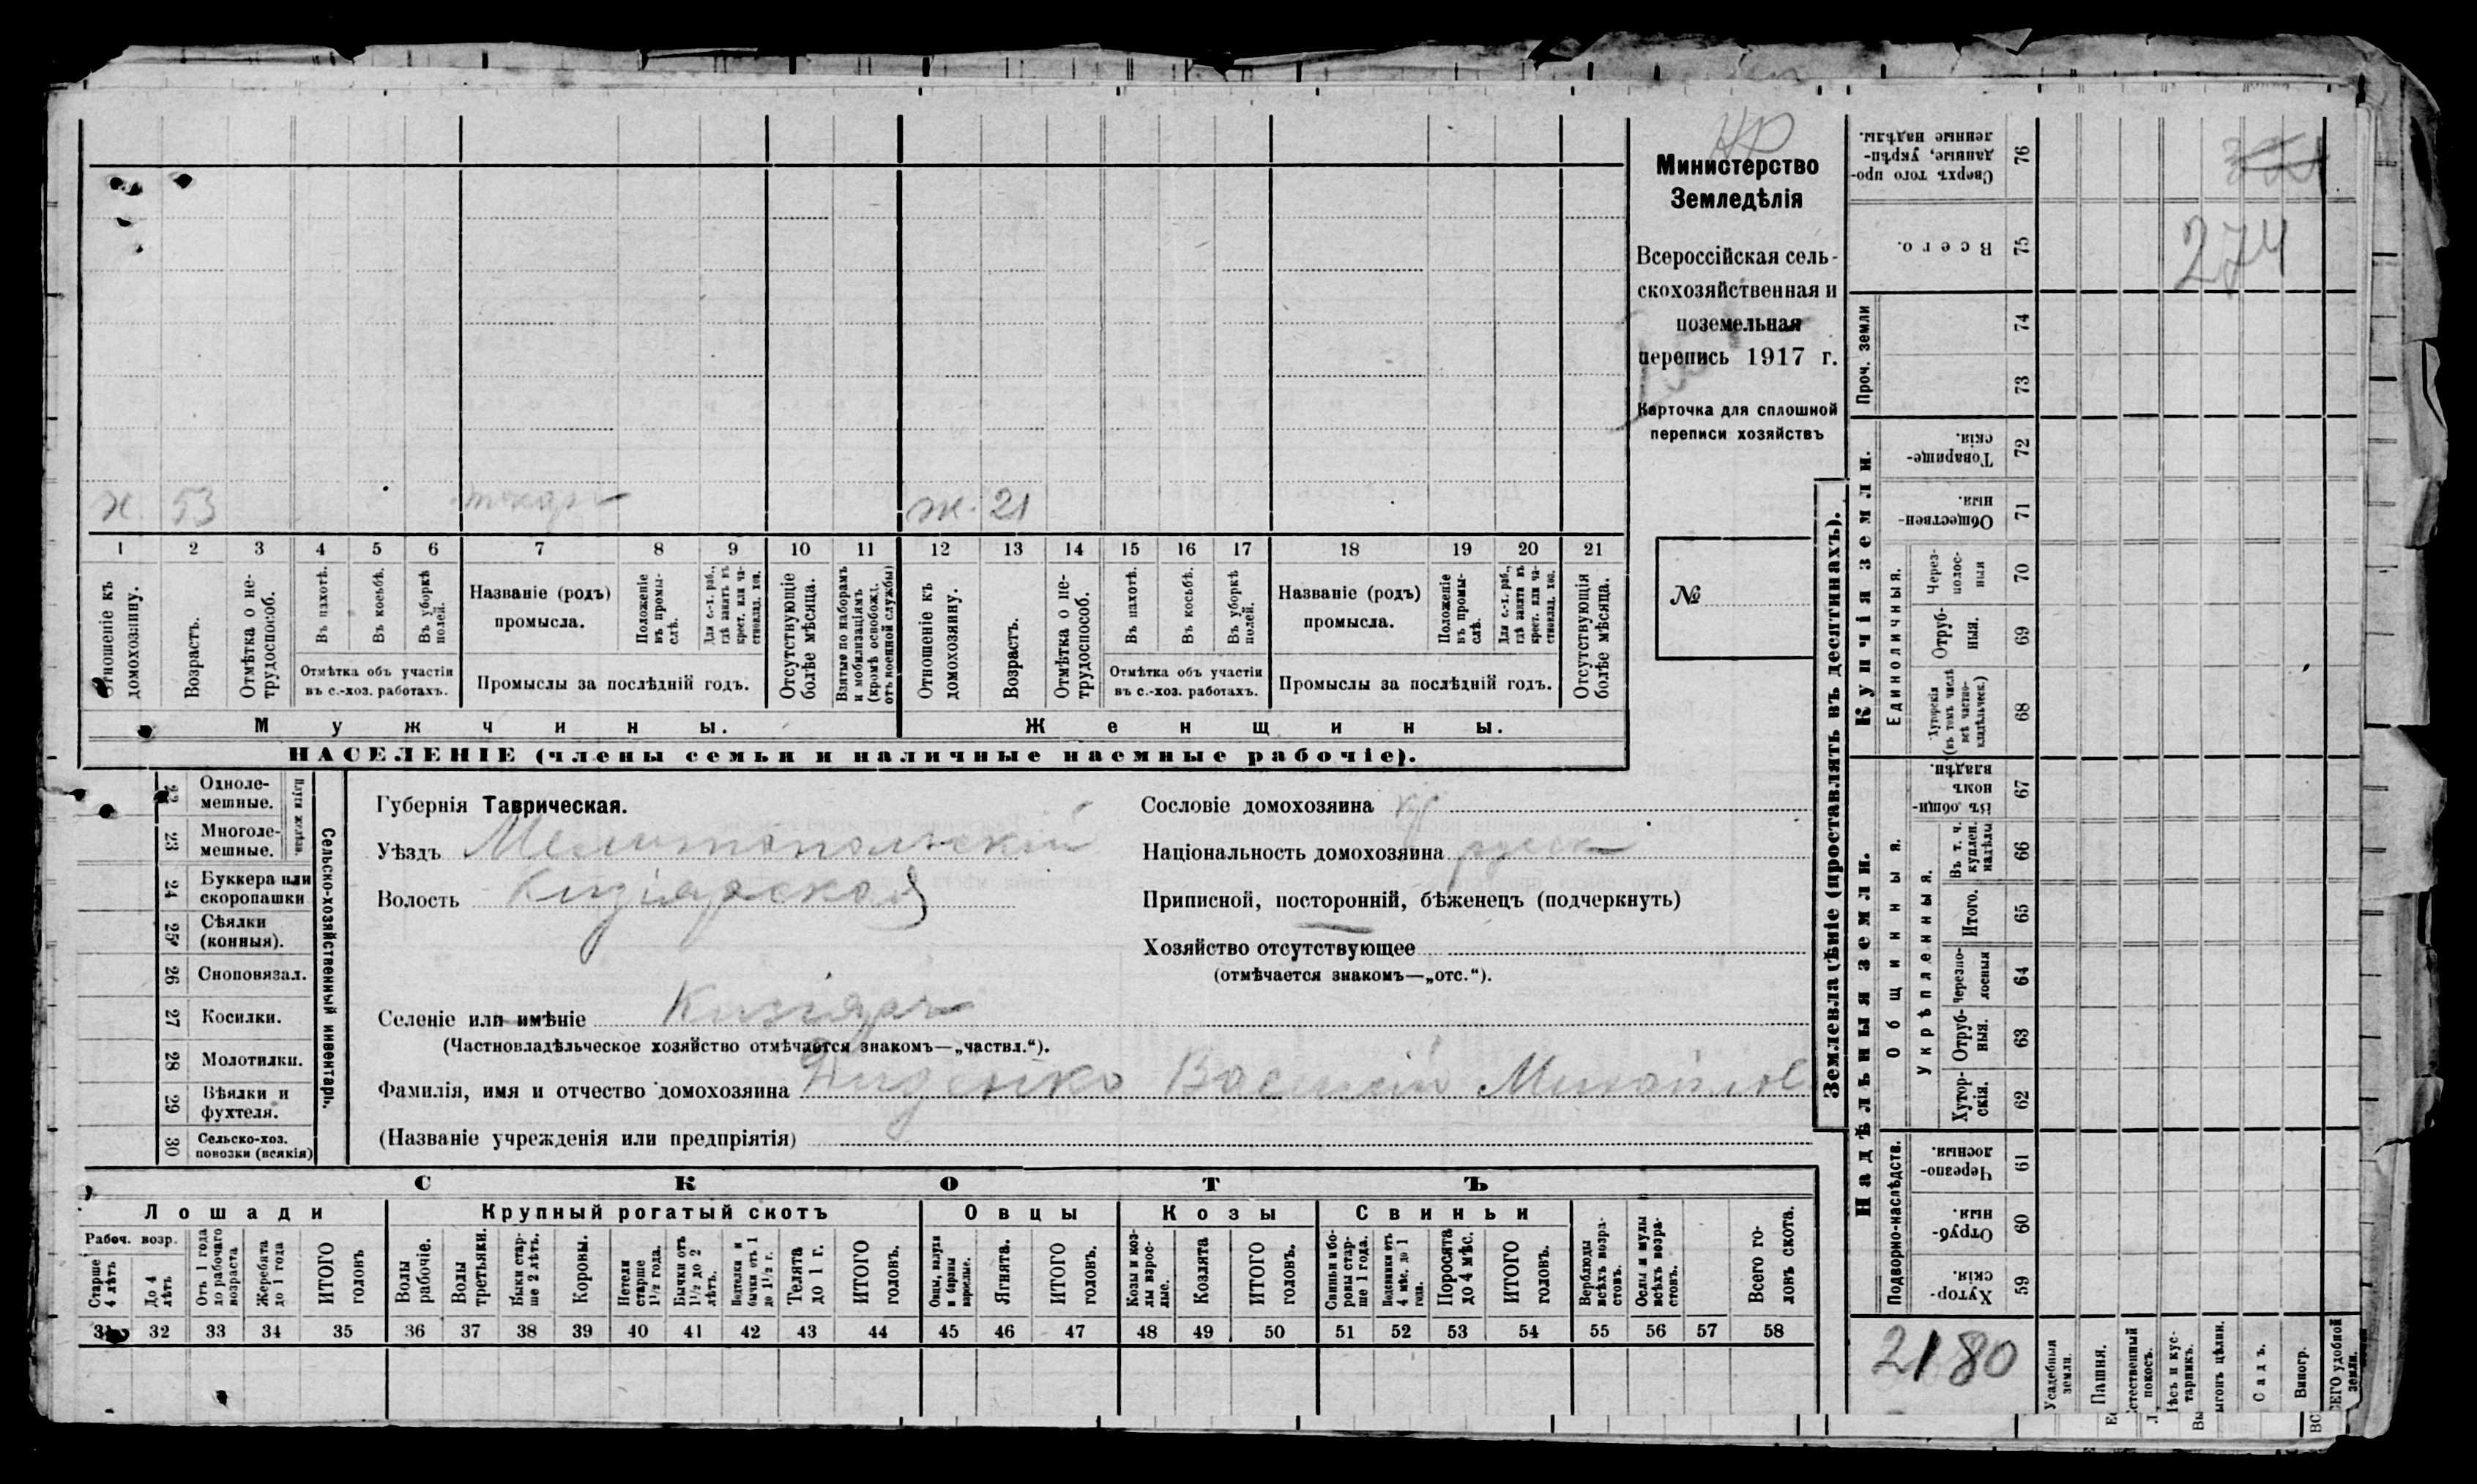 Министерство
Земледѣлія
Всероссійская сель-
скохозяйственная и
поземельная
перепись 1917 г.
Карточка для сплошной
переписи хозяйствъ
№
х. 53 токарь ж. 21
1 2 3 4 5 6 7 8 9 10 11 12 13 14 15 16 17 18 19 20 21
Отношеніе къ домохозяину.
Возрастъ.
Отмѣтка о не-
трудоспособ.
Въ пахотѣ.
Въ косьбѣ.
Въ уборкѣ полей.
Отмѣтка объ участіи
въ с.-хоз. работахъ.
Названіе (родъ)
промысла.
Положеніе
въ промы-
слѣ.
Для с.-х. раб.,
гдѣ занятъ въ
крест. или ча-
стновлад. хоз.
Промыслы за послѣдній годъ.
Отсутствующіе
болѣе мѣсяца.
Взятые по наборамъ
и мобилизаціямъ
(кромѣ освобожд.
отъ военной службы)
Отношеніе къ
домохозяину.
Возрастъ.
Отмѣтка о не-
трудоспособ.
Въ пахотѣ.
Въ косьбѣ.
Въ уборкѣ
полей.
Отмѣтка объ участіи
въ с.-хоз. работахъ.
Названіе (родъ)
промысла.
Положеніе
въ промы-
слѣ.
Для с.-х. раб.,
гдѣ занята въ
крест. или ча-
стновлад. хоз.
Промыслы за послѣдній годъ.
Отсутствующія
болѣе мѣсяца.
Мужчины. Женщины.
НАСЕЛЕНІЕ (члены семьи и наличные наемные рабочіе).
22 Одноле-
мешные.
23 Многоле-
мешные.
Плуги желѣзн.
24 Буккера или
скоропашки
25 Сѣялки
(конныя).
26 Сноповязал.
27 Косилки.
28 Молотилки.
29 Вѣялки и
фухтеля.
30 Сельско-хоз.
повозки (всякія)
Сельско-хозяйственный инвентарь.
Губернія Таврическая.
Уѣздъ Мелитопольскій
Волость Кизіярская
Селеніе или имѣніе Кизіяръ
(Частновладѣльческое хозяйство отмѣчается знакомъ—„частвл.“).
Фамилія, имя и отчество домохозяина Диденко Василій Михайлов
(Названіе учрежденія или предпріятія)
Сословіе домохозяина кр
Національность домохозяина русск
Приписной, посторонній, бѣженецъ (подчеркнуть)
Хозяйство отсутствующее
(отмѣчается знакомъ—„отс.“).
СКОТЪ
Лошади Крупный рогатый скотъ Овцы Козы Свиньи
Рабоч. возр.
Старше
4 лѣтъ
До 4
лѣтъ
Отъ 1 года
до рабочаго
возраста
Жеребята
до 1 года
ИТОГО
головъ
Волы
рабочіе.
Волы
третьяки.
Быки стар-
ше 2 лѣтъ.
Коровы.
Нетели
старше
1½ года.
Бычки отъ
1½ до 2
лѣтъ.
Подтелки и
бычки отъ 1
до 1½ г.
Телята
до 1 г.
ИТОГО
головъ.
Овцы, валухи
и бараны
взрослые.
Ягнята.
ИТОГО
головъ.
Козы и коз-
лы взрос-
лые.
Козлята
ИТОГО
головъ.
Свиньи и бо-
ровы стар-
ше 1 года.
Подсвинки отъ
4 мѣс. до 1
года.
Поросята
до 4 мѣс.
ИТОГО
головъ.
Верблюды
всѣхъ возра-
стовъ.
Ослы и мулы
всѣхъ возра-
стовъ.
Всего го-
ловъ скота.
31 32 33 34 35 36 37 38 39 40 41 42 43 44 45 46 47 48 49 50 51 52 53 54 55 56 57 58
Землевладѣніе (проставлять въ десятинахъ).
Надѣльныя земли. Купчія земли. Проч. земли
Подворно-наслѣдств.
Общинныя.
Укрѣпленныя.
Единоличныя.
Сверхъ того про-
данные, укрѣп-
ленные надѣлы. 76
Всего. 75
74
73
Товарище-
скія. 72
Обществен-
ныя. 71
Через-
полос-
ныя 70
Отруб-
ныя. 69
Хуторскія
(въ томъ числѣ
всѣ частно-
владѣльческ.) 68
Въ общин-
номъ
владѣн. 67
Въ т. ч.
куплен.
надѣлы 66
Итого. 65
Черезпо-
лосныя 64
Отруб-
ныя. 63
Хутор-
скія. 62
Черезпо-
лосныя. 61
Отруб-
ныя. 60
Хутор-
скія. 59
274
2180
Усадебныя
земли.
Пашня.
Естественный
покосъ.
Лѣсъ и кус-
тарникъ.
Выгонъ цѣлин.
Садъ.
Виногр.
ВСЕГО удобной
земли.